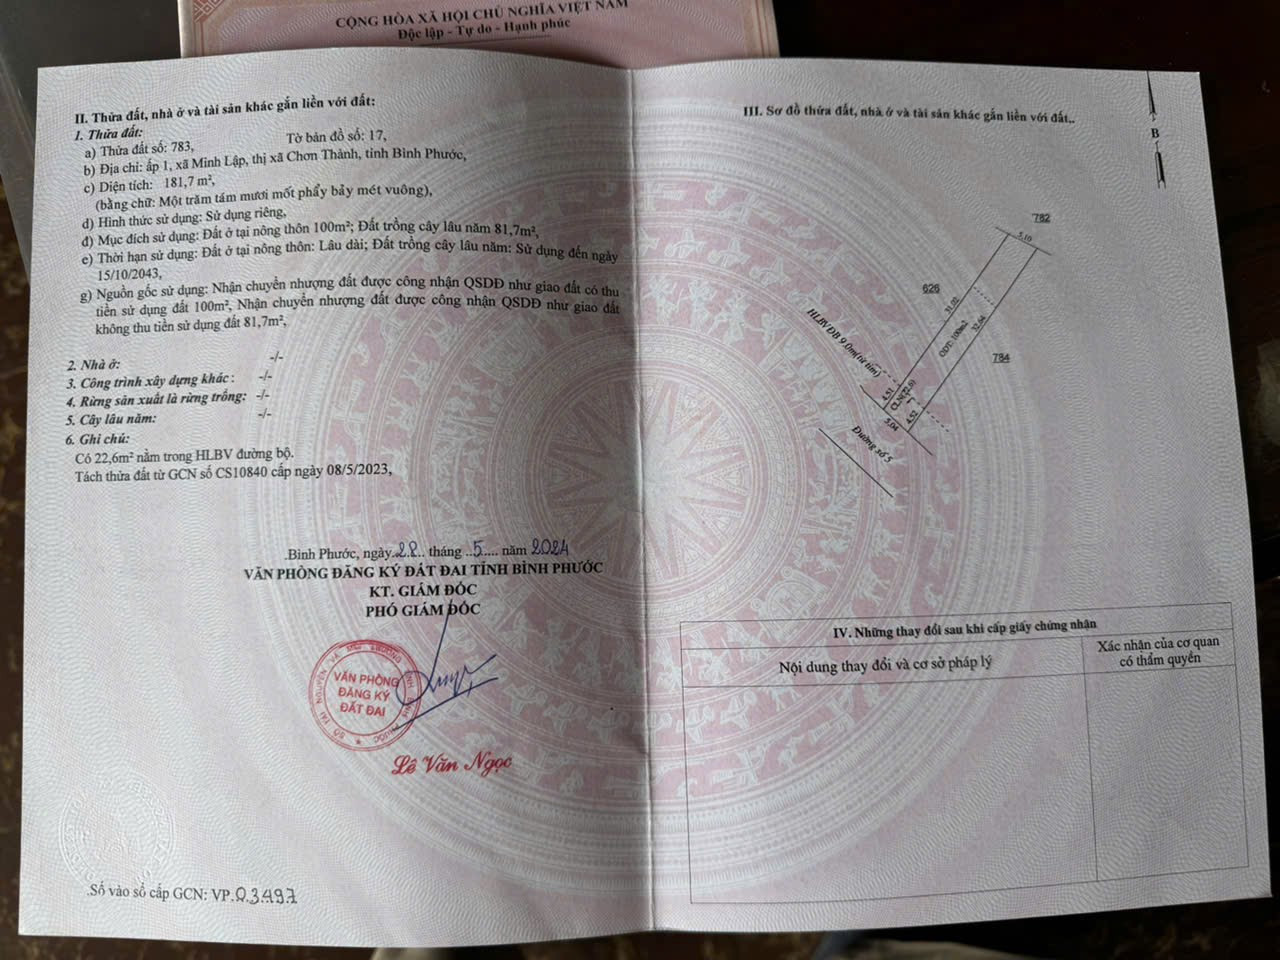 CỘNG HÒA XÃ HỘI CHỦ NGHĨA VIỆT NAM
Độc lập - Tự do - Hạnh phúc
II. Thửa đất, nhà ở và tài sản khác gắn liền với đất:
1. Thửa đất:
a) Thửa đất số: 783, Tờ bản đồ số: 17,
b) Địa chỉ: ấp 1, xã Minh Lập, thị xã Chơn Thành, tỉnh Bình Phước,
c) Diện tích: 181,7 m²,
(bằng chữ: Một trăm tám mươi mốt phẩy bảy mét vuông),
d) Hình thức sử dụng: Sử dụng riêng,
đ) Mục đích sử dụng: Đất ở tại nông thôn 100m²; Đất trồng cây lâu năm 81,7m²,
e) Thời hạn sử dụng: Đất ở tại nông thôn: Lâu dài; Đất trồng cây lâu năm: Sử dụng đến ngày
15/10/2043,
g) Nguồn gốc sử dụng: Nhận chuyển nhượng đất được công nhận QSDĐ như giao đất có thu
tiền sử dụng đất 100m², Nhận chuyển nhượng đất được công nhận QSDĐ như giao đất
không thu tiền sử dụng đất 81,7m²,
2. Nhà ở: -/-
3. Công trình xây dựng khác : -/-
4. Rừng sản xuất là rừng trồng: -/-
5. Cây lâu năm: -/-
6. Ghi chú:
Có 22,6m² nằm trong HLBV đường bộ.
Tách thửa đất từ GCN số CS10840 cấp ngày 08/5/2023,
.Bình Phước, ngày.22.. tháng ..5.... năm 2024
VĂN PHÒNG ĐĂNG KÝ ĐẤT ĐAI TỈNH BÌNH PHƯỚC
KT. GIÁM ĐỐC
PHÓ GIÁM ĐỐC
SỞ TÀI NGUYÊN VÀ MÔI TRƯỜNG TỈNH BÌNH PHƯỚC
VĂN PHÒNG
ĐĂNG KÝ
ĐẤT ĐAI
Lê Văn Ngọc
.Số vào sổ cấp GCN: VP.03497
III. Sơ đồ thửa đất, nhà ở và tài sản khác gắn liền với đất..
B
782
5.10
626
31.02
ODT: 100m2
32.04
784
HLBVĐB 9.0m(từ tim)
4.51
4.52
5.04
Đường số 5
IV. Những thay đổi sau khi cấp giấy chứng nhận
Nội dung thay đổi và cơ sở pháp lý
Xác nhận của cơ quan
có thẩm quyền